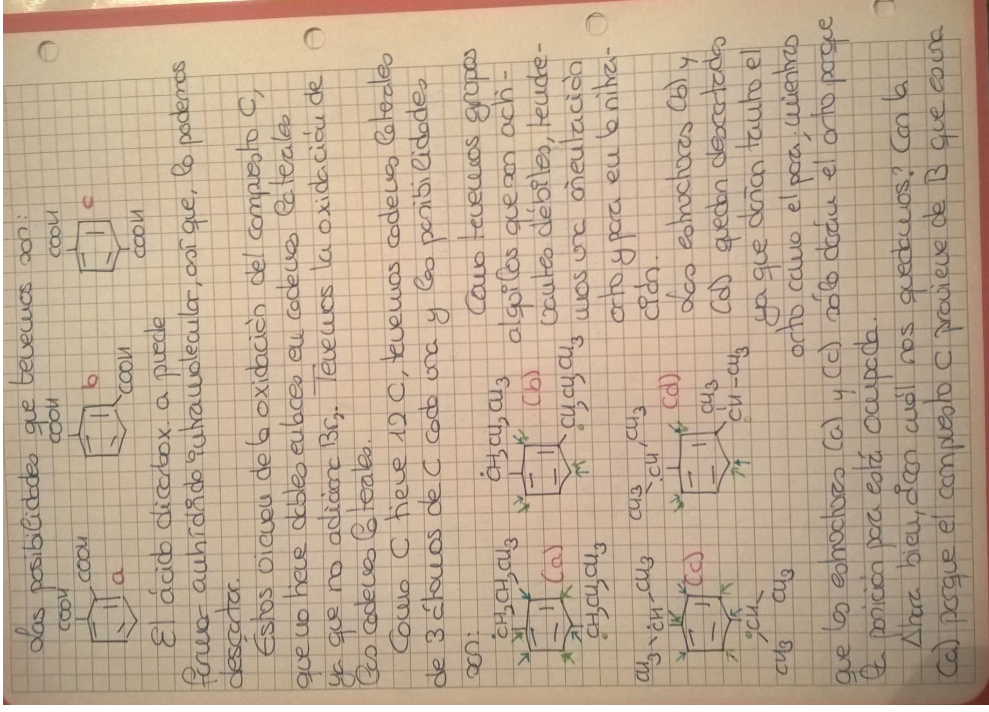 Las posibilidades que tenemos son:
COOH COOH a
COOH COOH b
COOH COOH c
El ácido dicarbox a puede
formar anhídrido intramolecular, así que, lo podemos
descartar.
Estos vienen de la oxidación del compuesto C,
que no tiene dobles enlaces en cadenas laterales
ya que no adiciona Br₂. Tenemos la oxidación de
las cadenas laterales.
Como C tiene 12 C, tenemos cadenas laterales
de 3 átomos de C cada una y las posibilidades
son:
CH₂CH₂CH₃ (a) CH₂CH₂CH₃
CH₂CH₂CH₃ (b) CH₂CH₂CH₃
CH₃ CH CH₃ (c) CH CH₃ CH₃
CH₃ CH CH₃ (d) CH₃ CH-CH₃
Como tenemos grupos
alquilos que son acti-
vantes débiles, tendre-
mos una orientación
orto y para en la nitra-
ción.
Las estructuras (b) y
(d) quedan descartadas
ya que darían tanto el
orto como el para, mientras
que las estructuras (a) y (c) sólo darían el orto porque
la posición para está ocupada.
Ahora bien, ¿con cuál nos quedamos? Con la
(a) porque el compuesto C proviene de B que es una